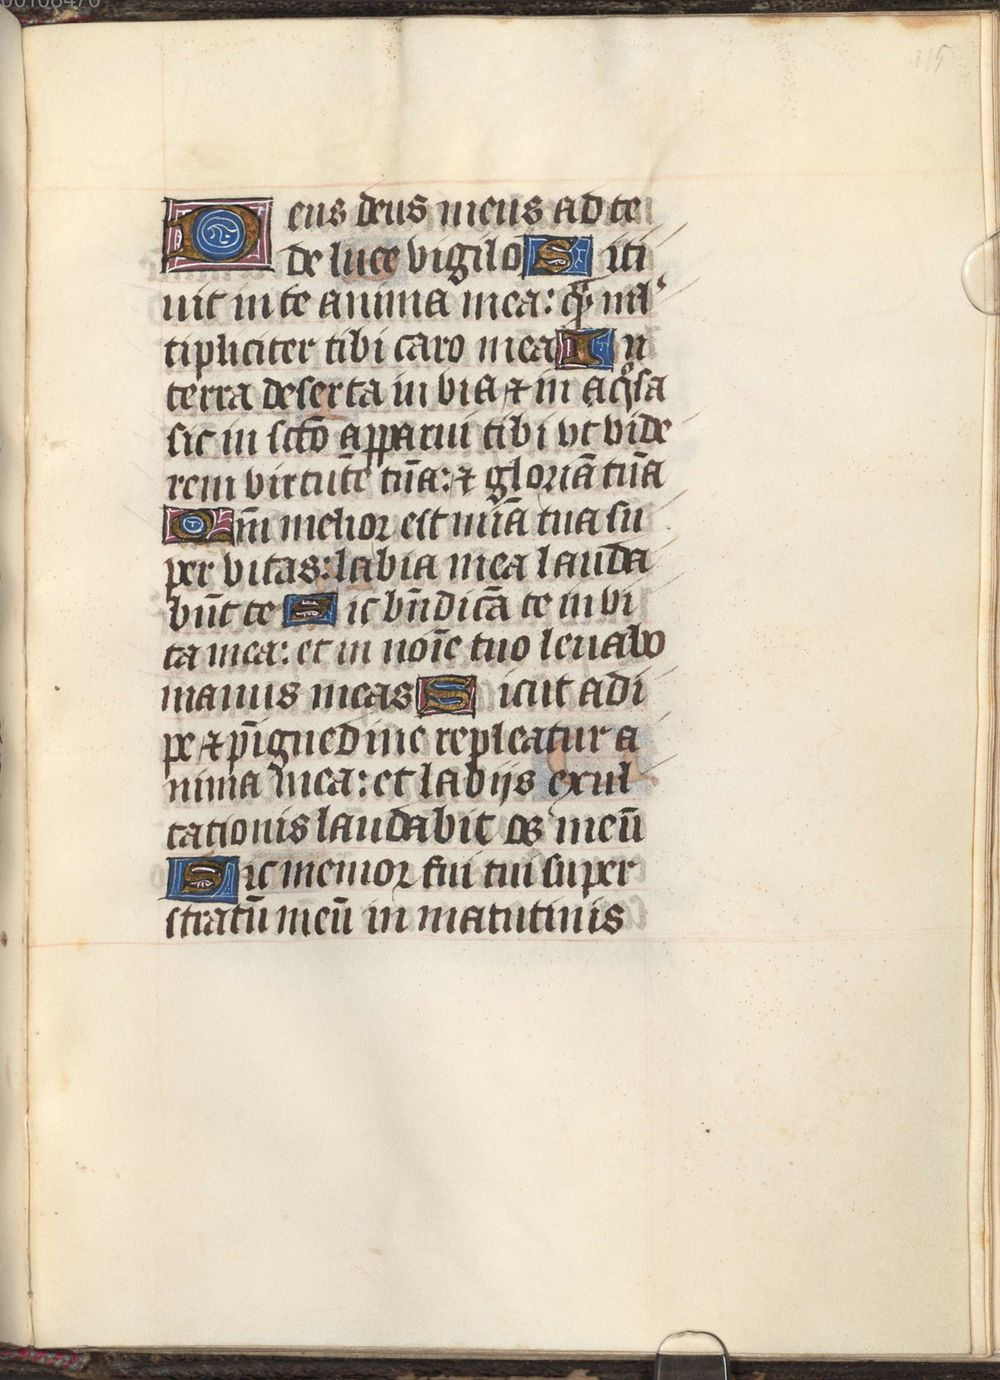 115
Deus deus meus ad te
de luce vigilo Siti
uit in te anima mea: q̄ꝫ ml᷒
tipliciter tibi caro mea In
terra deserta in via ⁊ in aq̊sa
sic in sctō apparui tibi vt vide
rem virtutē tuā: ⁊ gloriā tuā
Qm̄ melior est mīa tua su
per vitas: labia mea lauda
būt te Sic bn̄dicā te in vi
ta mea: et in noīe tuo leuabo
manus meas Sicut adi
pe ⁊ pīguedine repleatur a
nima mea: et labijs exul
tationis laudabit os meū
Sic memor fui tui super
stratū meū in matutinis